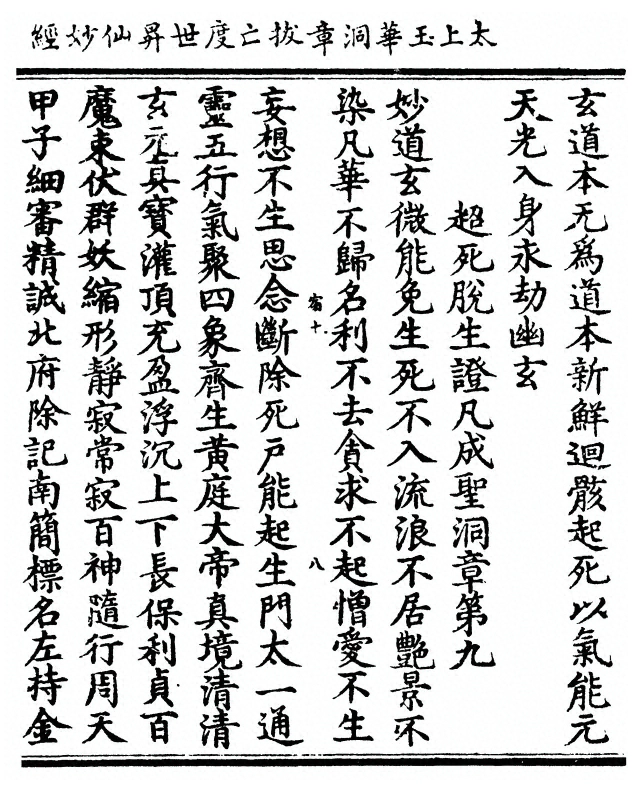 太上玉華洞章拔亡度世昇仙妙經
玄道本无爲道本新鮮迴骸起死以氣能元
天光入身永劫幽玄
超死脫生證凡成聖洞章第九
妙道玄微能免生死不入流浪不居艷景不
染凡華不歸名利不去貪求不起憎愛不生
宿十
八
妄想不生思念斷除死戶能起生門太一通
靈五行氣聚四象齊生黃庭大帝真境清清
玄元真寶灌頂充盈浮沉上下長保利貞百
魔束伏群妖縮形靜寂常寂百神隨行周天
甲子細審精誠北府除記南簡標名左持金